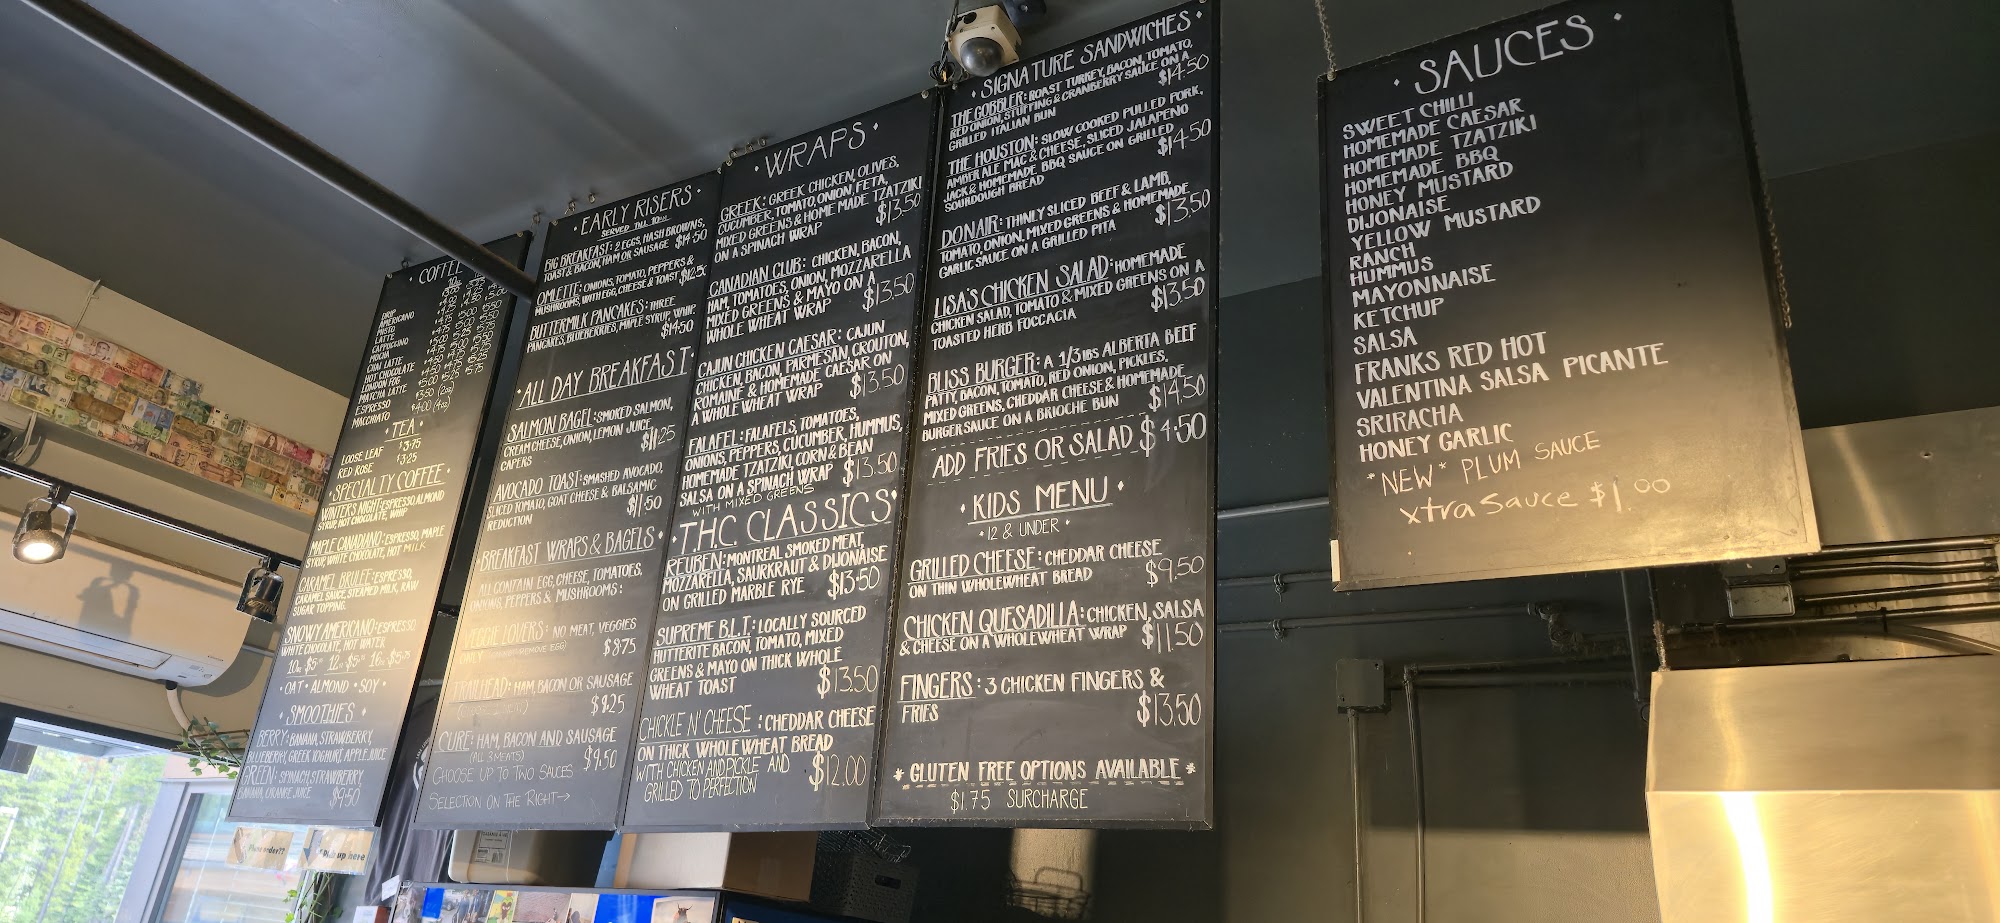 COFFEE
DRIP
AMERICANO
MISTO
LATTE
CAPPUCCINO
MOCHA
CHAI LATTE
HOT CHOCOLATE
LONDON FOG
MATCHA LATTE
ESPRESSO $3.50 (2oz)
MACCHIATO $4.00 (4oz)
• TEA •
LOOSE LEAF $3.75
RED ROSE $3.25
• SPECIALTY COFFEE •
WINTER'S NIGHT: ESPRESSO, ALMOND
SYRUP, HOT CHOCOLATE, WHIP
MAPLE CANADIANO: ESPRESSO, MAPLE
SYRUP, WHITE CHOCOLATE, HOT MILK
CARAMEL BRULEE: ESPRESSO,
CARAMEL SAUCE, STEAMED MILK, RAW
SUGAR TOPPING.
SNOWY AMERICANO: ESPRESSO,
WHITE CHOCOLATE, HOT WATER
• OAT • ALMOND • SOY •
• SMOOTHIES •
BERRY: BANANA, STRAWBERRY,
BLUEBERRY, GREEK YOGHURT, APPLE JUICE
GREEN: SPINACH, STRAWBERRY
BANANA, ORANGE JUICE $9.50
• EARLY RISERS •
SERVED TILL 10am
BIG BREAKFAST: 2 EGGS, HASH BROWNS,
TOAST & BACON, HAM OR SAUSAGE $14.50
OMLETTE: ONIONS, TOMATO, PEPPERS &
MUSHROOMS, WITH EGG, CHEESE & TOAST $12.50
BUTTERMILK PANCAKES: THREE
PANCAKES, BLUEBERRIES, MAPLE SYRUP, WHIP.
$14.50
• ALL DAY BREAKFAST •
SALMON BAGEL: SMOKED SALMON,
CREAM CHEESE, ONION, LEMON JUICE
CAPERS $11.25
AVOCADO TOAST: SMASHED AVOCADO,
SLICED TOMATO, GOAT CHEESE & BALSAMIC
REDUCTION $11.50
• BREAKFAST WRAPS & BAGELS •
ALL CONTAIN EGG, CHEESE, TOMATOES,
ONIONS, PEPPERS & MUSHROOMS:
VEGGIE LOVERS: NO MEAT, VEGGIES
ONLY $8.75
TRAILHEAD: HAM, BACON OR SAUSAGE
$9.25
CURE: HAM, BACON AND SAUSAGE
(ALL 3 MEATS) $9.50
CHOOSE UP TO TWO SAUCES
SELECTION ON THE RIGHT→
• WRAPS •
GREEK: GREEK CHICKEN, OLIVES,
CUCUMBER, TOMATO, ONION, FETA,
MIXED GREENS & HOME MADE TZATZIKI
ON A SPINACH WRAP $13.50
CANADIAN CLUB: CHICKEN, BACON,
HAM, TOMATOES, ONION, MOZZARELLA
MIXED GREENS & MAYO ON A
WHOLE WHEAT WRAP $13.50
CAJUN CHICKEN CAESAR: CAJUN
CHICKEN, BACON, PARMESAN, CROUTON,
ROMAINE & HOMEMADE CAESAR ON
A WHOLE WHEAT WRAP $13.50
FALAFEL: FALAFELS, TOMATOES,
ONIONS, PEPPERS, CUCUMBER, HUMMUS,
HOMEMADE TZATZIKI, CORN & BEAN
SALSA ON A SPINACH WRAP $13.50
WITH MIXED GREENS
• T.H.C. CLASSICS •
REUBEN: MONTREAL SMOKED MEAT,
MOZZARELLA, SAURKRAUT & DIJONAISE
ON GRILLED MARBLE RYE $13.50
SUPREME B.L.T: LOCALLY SOURCED
HUTTERITE BACON, TOMATO, MIXED
GREENS & MAYO ON THICK WHOLE
WHEAT TOAST $13.50
CHICKLE N' CHEESE: CHEDDAR CHEESE
ON THICK WHOLE WHEAT BREAD
WITH CHICKEN AND PICKLE AND
GRILLED TO PERFECTION $12.00
• SIGNATURE SANDWICHES •
THE GOBBLER: ROAST TURKEY, BACON, TOMATO,
RED ONION, STUFFING & CRANBERRY SAUCE ON A
GRILLED ITALIAN BUN $14.50
THE HOUSTON: SLOW COOKED PULLED PORK,
AMBER ALE MAC & CHEESE, SLICED JALAPENO
JACK & HOMEMADE BBQ SAUCE ON GRILLED
SOURDOUGH BREAD $14.50
DONAIR: THINLY SLICED BEEF & LAMB,
TOMATO, ONION, MIXED GREENS & HOMEMADE
GARLIC SAUCE ON A GRILLED PITA $13.50
LISA'S CHICKEN SALAD: HOMEMADE
CHICKEN SALAD, TOMATO & MIXED GREENS ON A
TOASTED HERB FOCCACIA $13.50
BLISS BURGER: A 1/3 lbs ALBERTA BEEF
PATTY, BACON, TOMATO, RED ONION, PICKLES,
MIXED GREENS, CHEDDAR CHEESE & HOMEMADE
BURGER SAUCE ON A BRIOCHE BUN $14.50
ADD FRIES OR SALAD $4.50
• KIDS MENU •
• 12 & UNDER •
GRILLED CHEESE: CHEDDAR CHEESE
ON THIN WHOLEWHEAT BREAD $9.50
CHICKEN QUESADILLA: CHICKEN, SALSA
& CHEESE ON A WHOLEWHEAT WRAP $11.50
FINGERS: 3 CHICKEN FINGERS &
FRIES $13.50
* GLUTEN FREE OPTIONS AVAILABLE *
$1.75 SURCHARGE
• SAUCES •
SWEET CHILLI
HOMEMADE CAESAR
HOMEMADE TZATZIKI
HOMEMADE BBQ
HONEY MUSTARD
DIJONAISE
YELLOW MUSTARD
RANCH
HUMMUS
MAYONNAISE
KETCHUP
SALSA
FRANKS RED HOT
VALENTINA SALSA PICANTE
SRIRACHA
HONEY GARLIC
*NEW* PLUM SAUCE
xtra Sauce $1.00
Pick up here